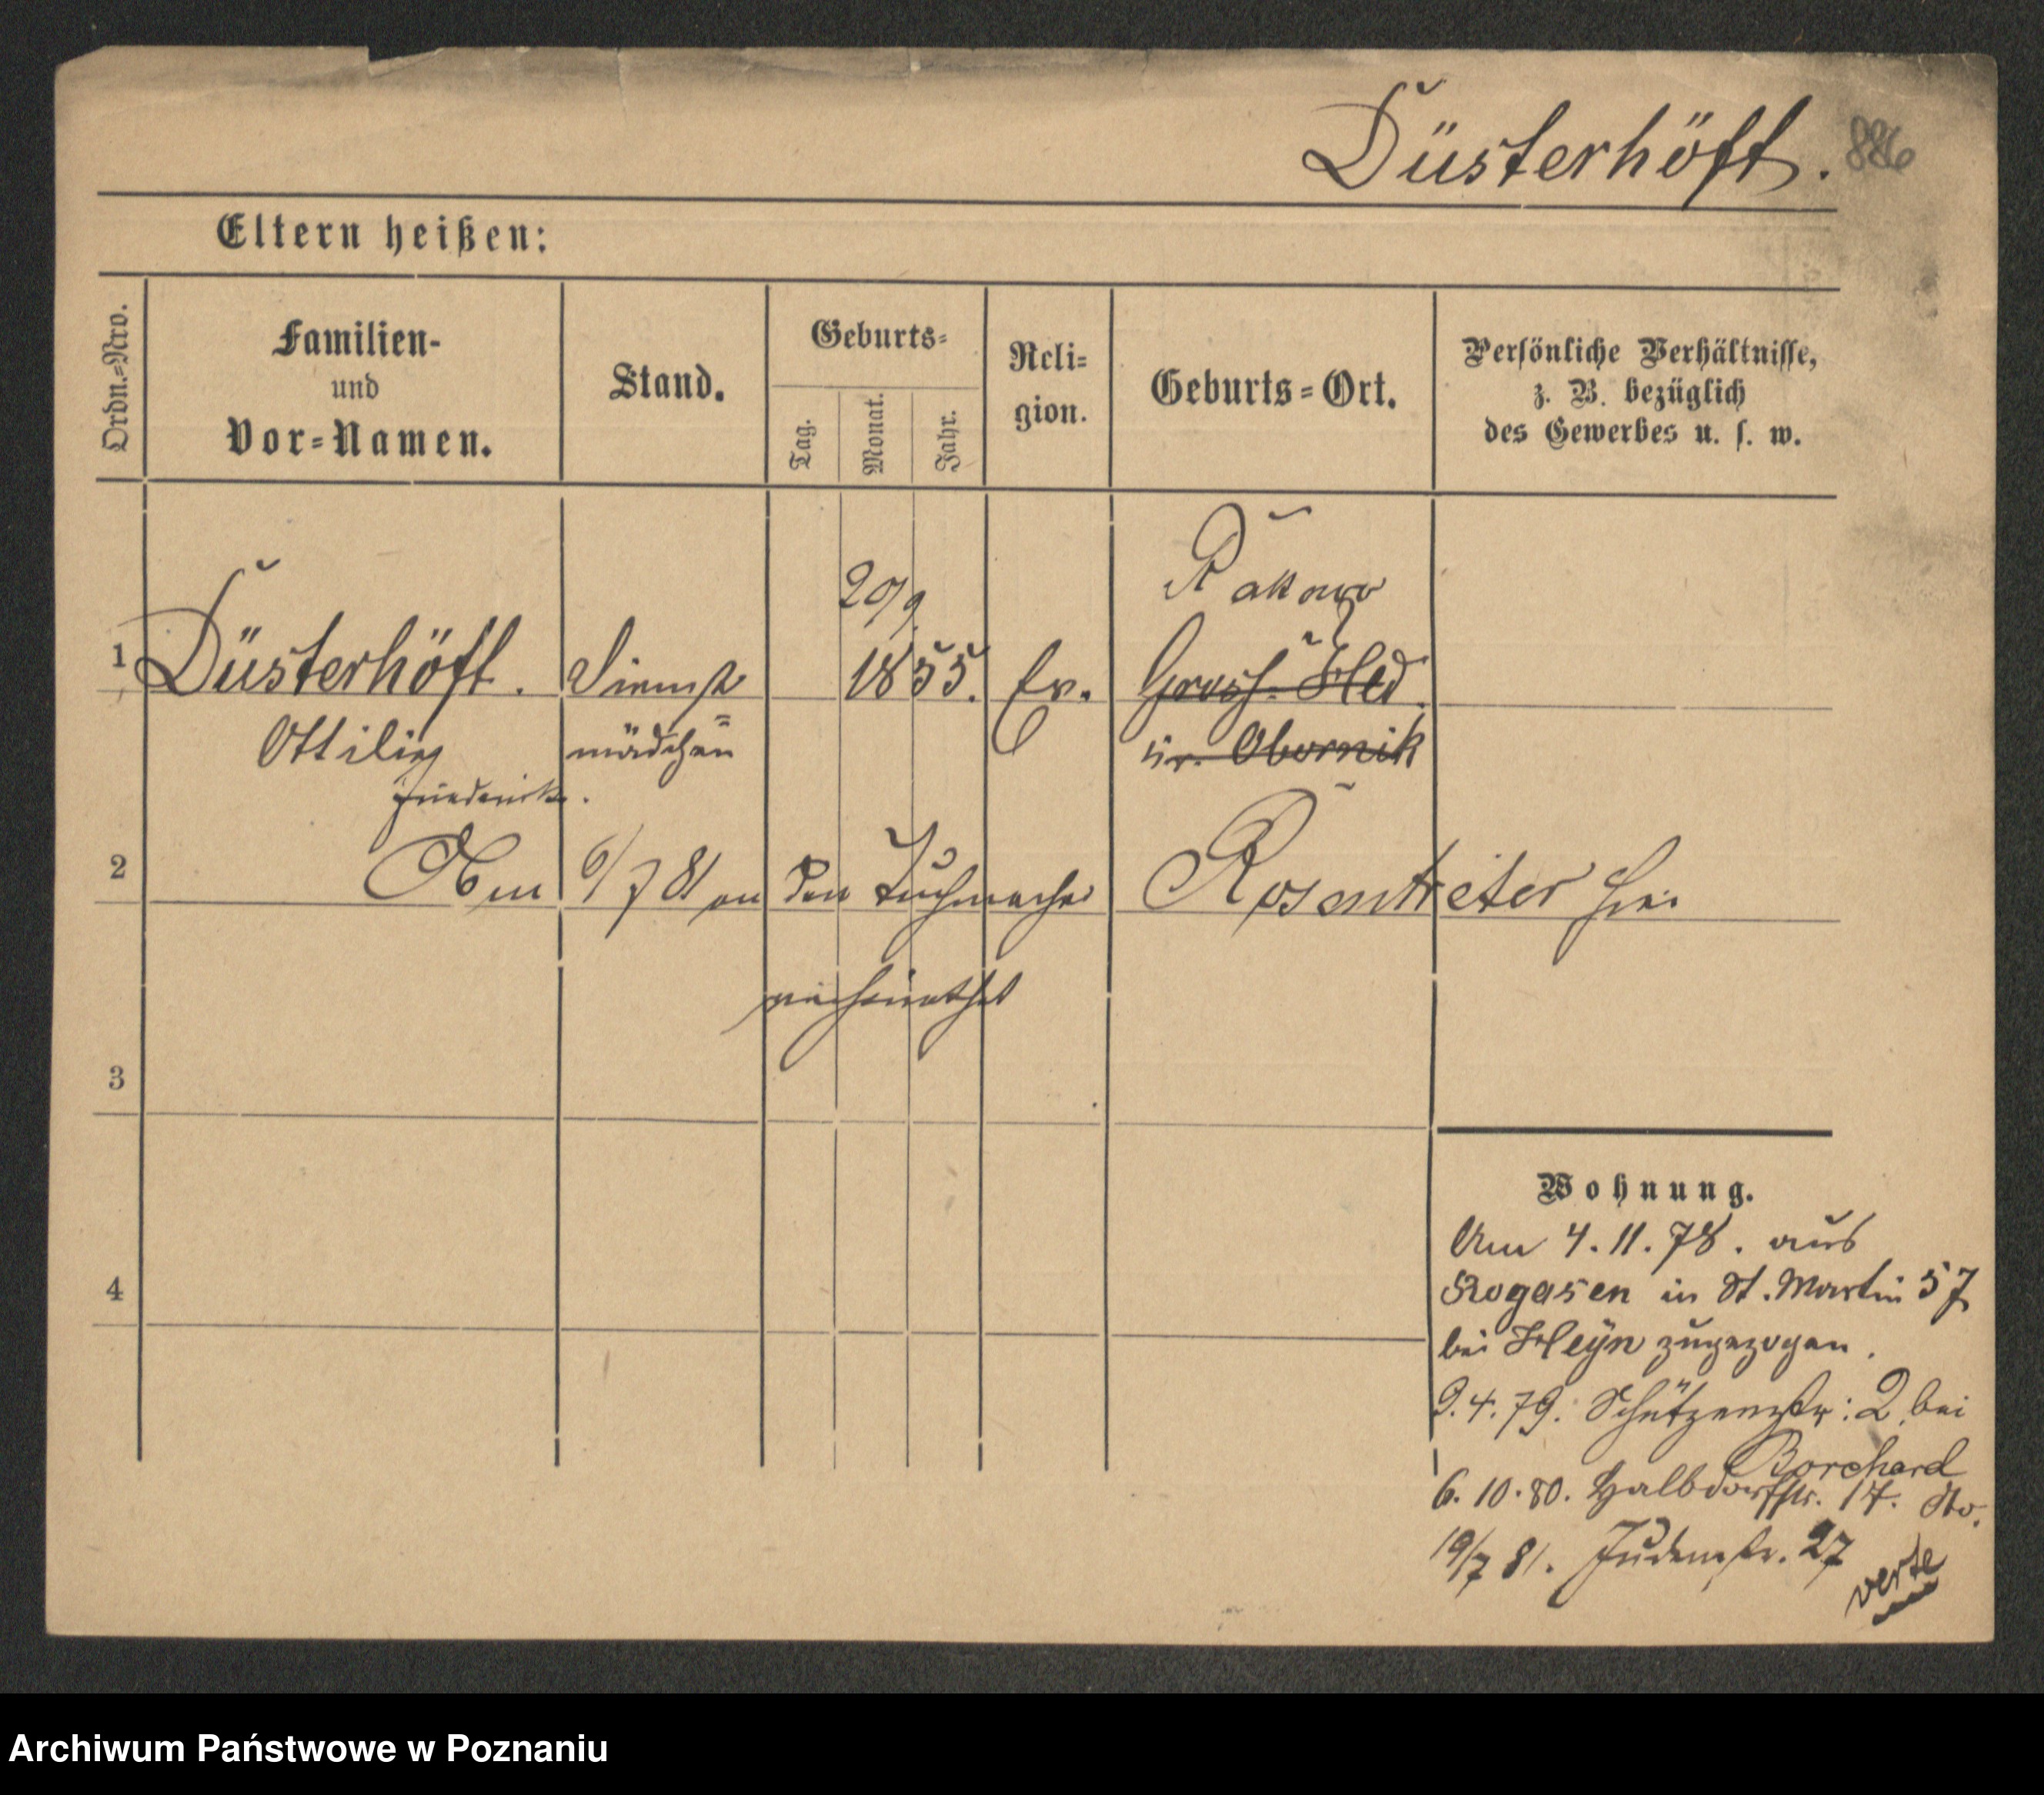 Düsterhöft. 886
Eltern heißen:
Ordn.=Nro.
Familien-
und
Vor=Namen.
Stand.
Geburts=
Tag.
Monat.
Jahr.
Reli=
gion.
Geburts=Ort.
Persönliche Verhältnisse,
z. B. bezüglich
des Gewerbes u. s. w.
20/9
Rakowo
1 Düsterhöft. Dienst 1855. Ev. Gross-
Ottilie mädchen Kr. Obornik
Friederike.
2 Am 6/7 81 an den Tuchmacher Rosentreter hier
verheirathet
3
4
Wohnung.
Am 4.11.78. aus
Rogasen in St. Martin 57
bei Heyn zugezogen.
9.4.79. Schützenstr: 2. bei
Borchard
6.10.80. Halbdorfstr. 17. Sto.
19/7 81. Judenstr. 27
verte
Archiwum Państwowe w Poznaniu